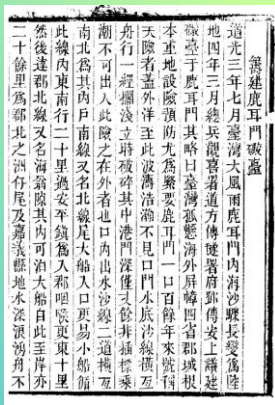 籌建鹿耳門礮臺
道光三年七月臺灣大風雨鹿耳門內海沙驟長變為陸
地四年三月總兵觀喜署道方傳穟署府鄧傳安上議建
礮臺于鹿耳門其略曰臺灣孤懸海外屏幛四省郡城根
本重地設險預防尤為緊要鹿耳門一口百餘年來號稱
天險者蓋外洋至此波濤浩瀚不見口門水底沙線橫亙
舟行一經擱淺立時破碎其中港門深僅丈餘非插標乘
潮不可出入此險之在外者也口內出水沙線二道橫亙
南北為其內戶南線又名北線尾大船入口更易小船循
此線內東南行二十里過安平鎮為入郡咽喉更東十里
然後達郡北線又名海翁隙其內可泊大船自此至岸亦
二十餘里為郡北之洲仔尾及嘉義縣地水深浪湧舟不